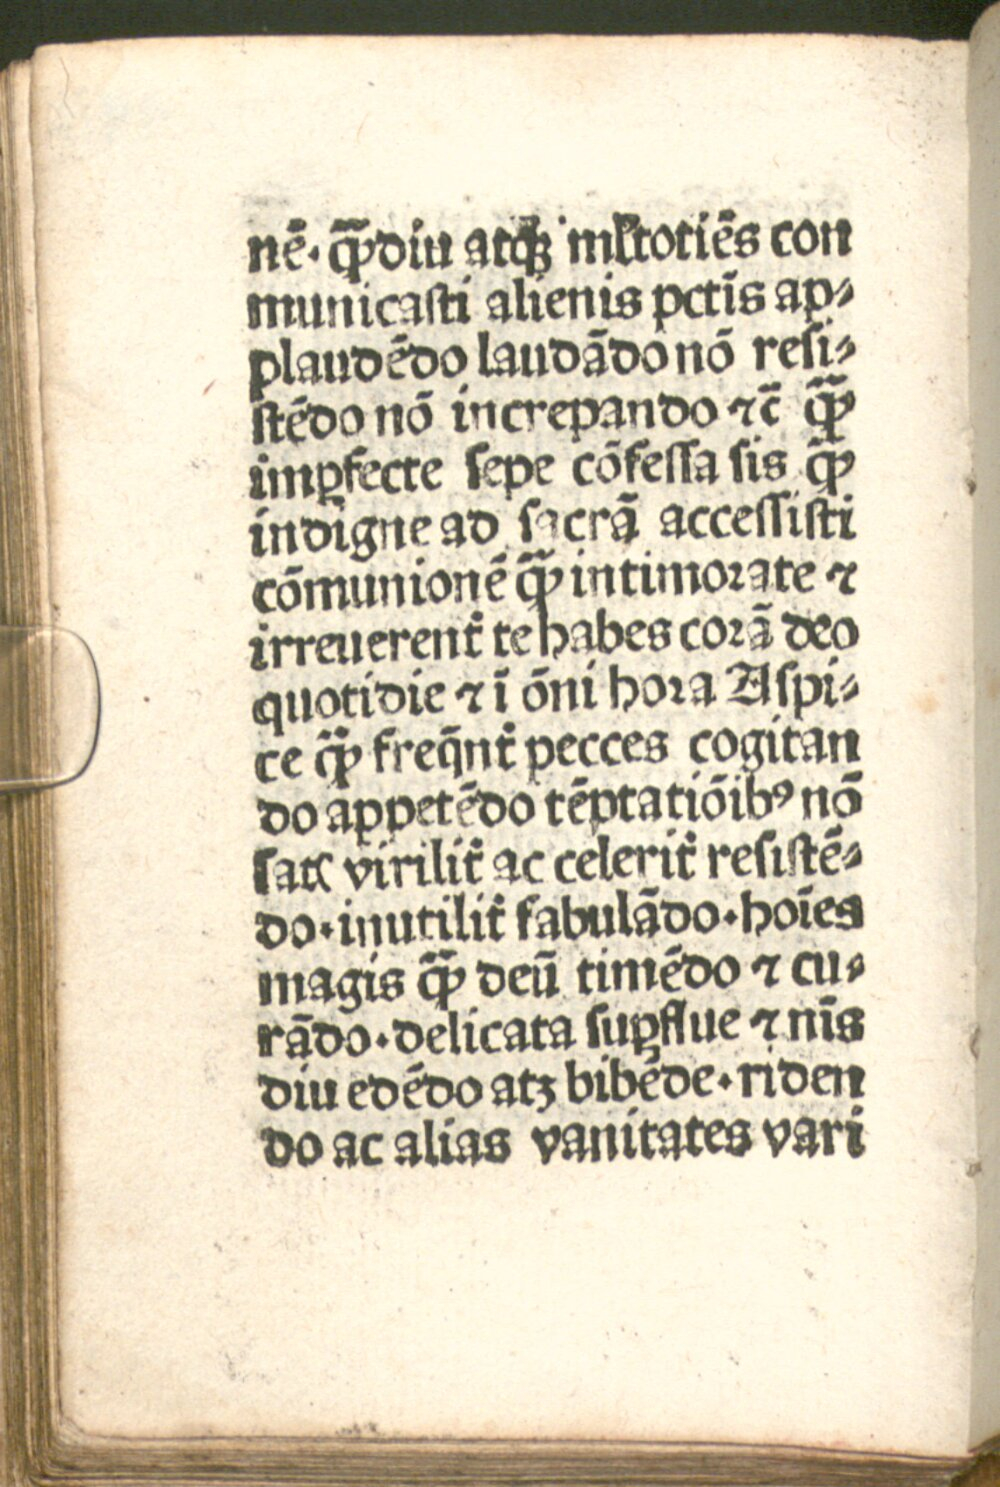 nē· q̄ꝫdiu atqꝫ ml̓totiēs con
municaſti alienis pctīs ap⸗
plaudēdo laudādo nō reſi⸗
ſtēdo nō increpando ⁊c̄ q̄ꝫ
imꝑfecte ſepe cōfeſſa ſis q̄ꝫ
indigne ad ſacrā acceſſiſti
cōmunionē q̄ꝫ intimoꝛate ⁊
irreuerent᷑ te habes coꝛā deo
quotidie ⁊ ī ōni hoꝛa Aſpi⸗
ce q̄ꝫ freq̄nt᷑ pecces cogitan
do appetēdo tēptatiōibꝰ nō
ſatꝭ virilit᷑ ac celerit᷑ reſiſtē⸗
do·inutilit᷑ fabulādo·hoīes
magis q̄ꝫ deū timēdo ⁊ cu⸗
rādo·delicata ſuꝑflue ⁊ nīs
diu edēdo atꝫ bibēde·riden
do ac alias vanitates vari